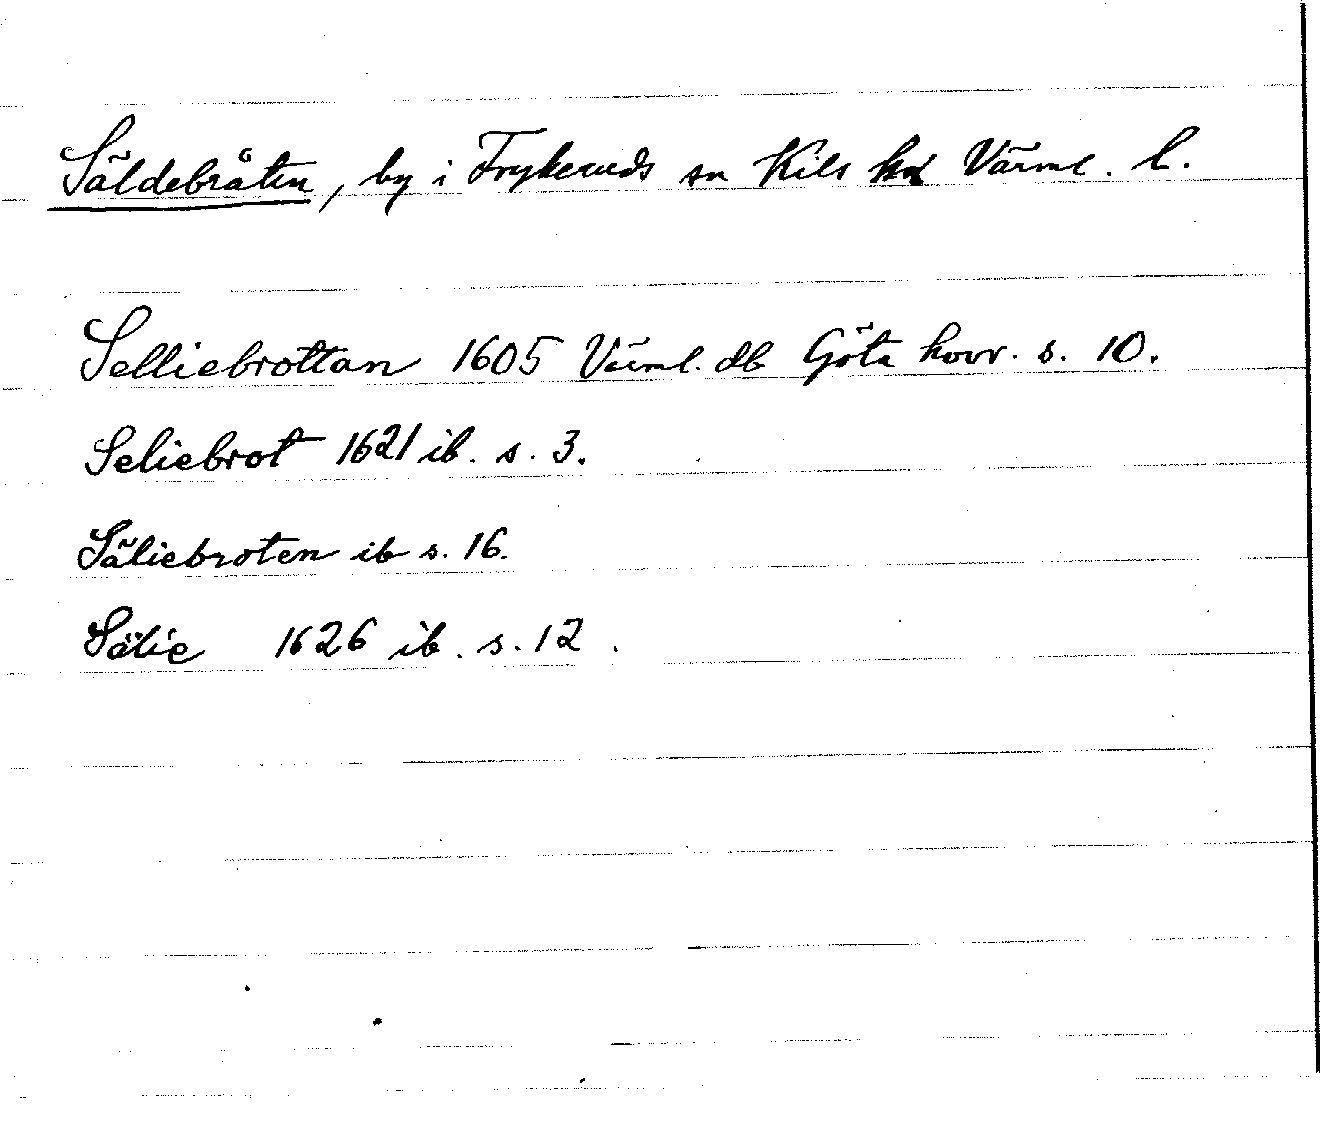 Säldebråten, by i Frykeruds sn Kils hd Värml. l.
Selliebrottan 1605 Värml. db Göta hovr. s. 10.
Seliebrot 1621 ib. s. 3.
Säliebroten ib s. 16.
Sälie 1626 ib. s. 12.